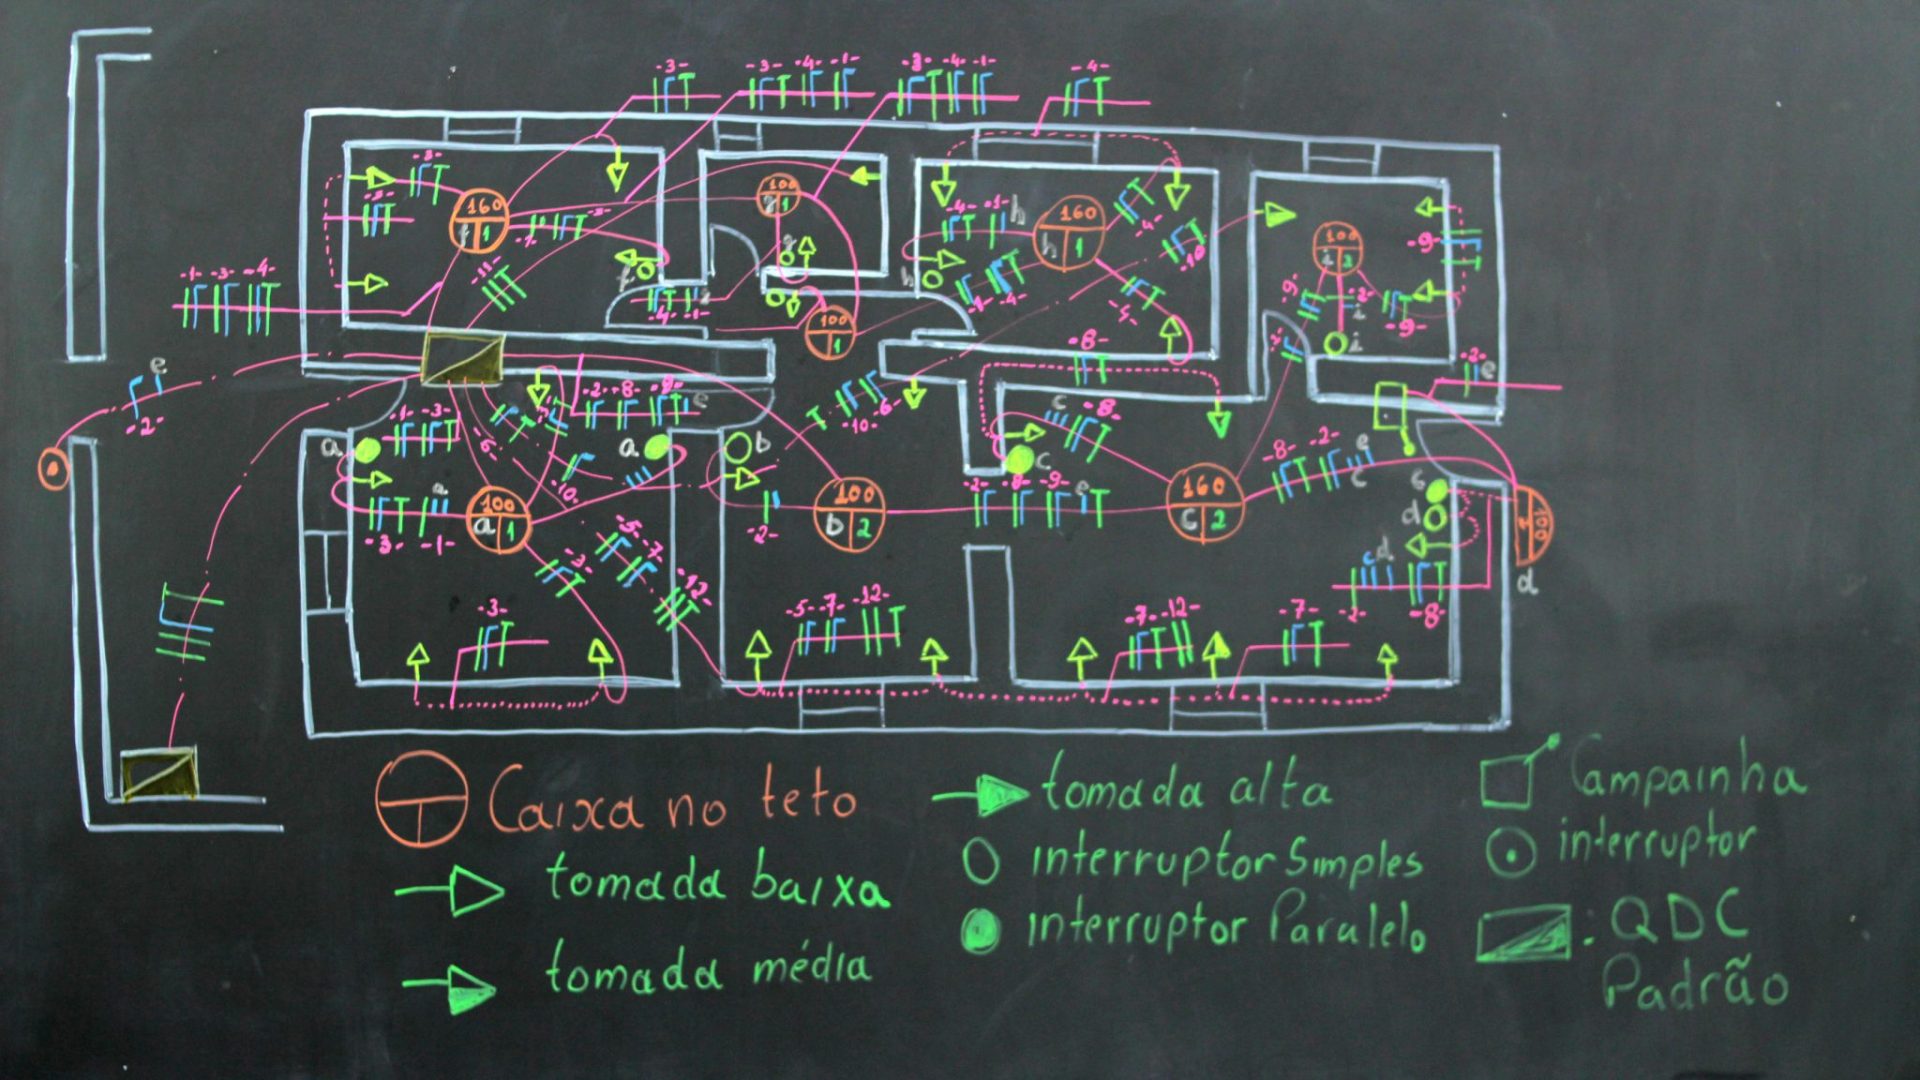 -3-
-3- -4- -1-
-3- -4- -1-
-4-
-3-
160
f 1
-3-
-1-
-11-
100
1
-4- -1- h
160
h 1
-4-
-10
100
i 2
-9-
-1- -3- -4-
f
g
-4- -1-
100
1
h
-1- -4-
-5-
-2-
i
-9-
i
e
-2-
-8-
-2- -8- -9-
e
-2-
e
-1- -3-
a
a
b
-10- -6-
c
-8-
c
-8- -2-
e
c
-6-
-10-
a
100
a 1
-3- -1-
-2-
100
b 2
-2- -8- -9-
e
160
c 2
d
100
d
-3-
-5-
-7-
-12-
c d
-2- -8-
-3-
-5- -7- -12-
-7- -12-
-7-
Caixa no teto
tomada baixa
tomada média
tomada alta
interruptor Simples
interruptor Paralelo
Campainha
interruptor
QDC
Padrão